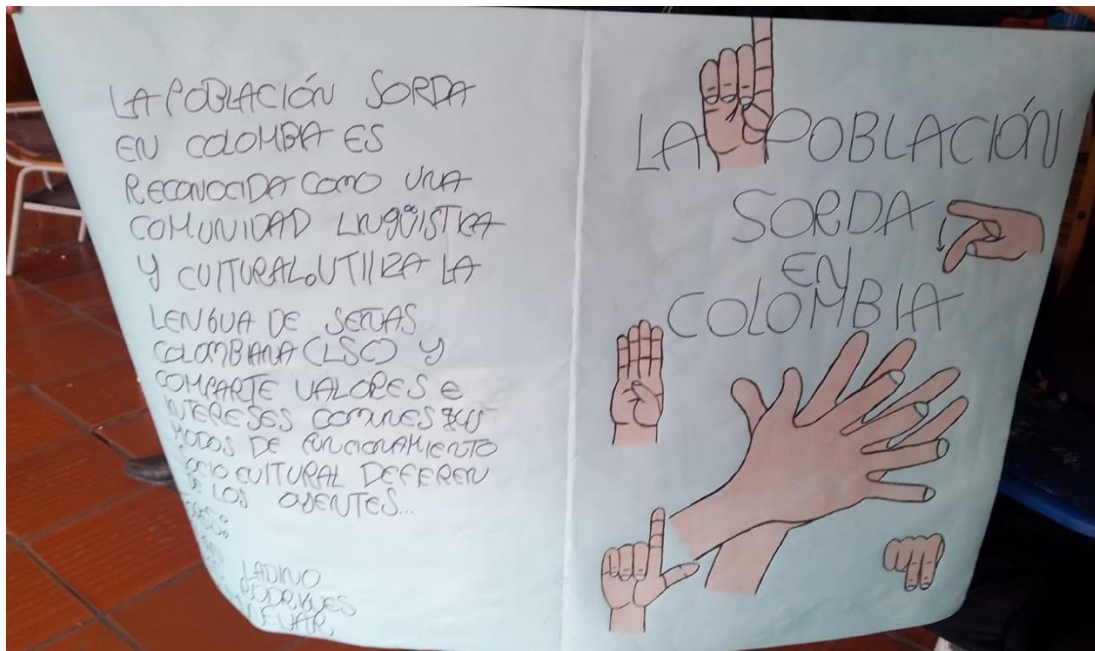 LA POBLACIÓN SORDA
EN COLOMBIA ES
RECONOCIDA COMO UNA
COMUNIDAD LINGÜISTICA
Y CULTURAL. UTILIZA LA
LENGUA DE SEÑAS
COLOMBIANA (LSC) Y
COMPARTE VALORES E
INTERESES COMUNES SUS
MODOS DE FUNCIONAMIENTO
SOCIOCULTURAL DEFEREN
DE LOS OYENTES...
LADINO
RODRIGUES
LA POBLACIÓN
SORDA
EN
COLOMBIA